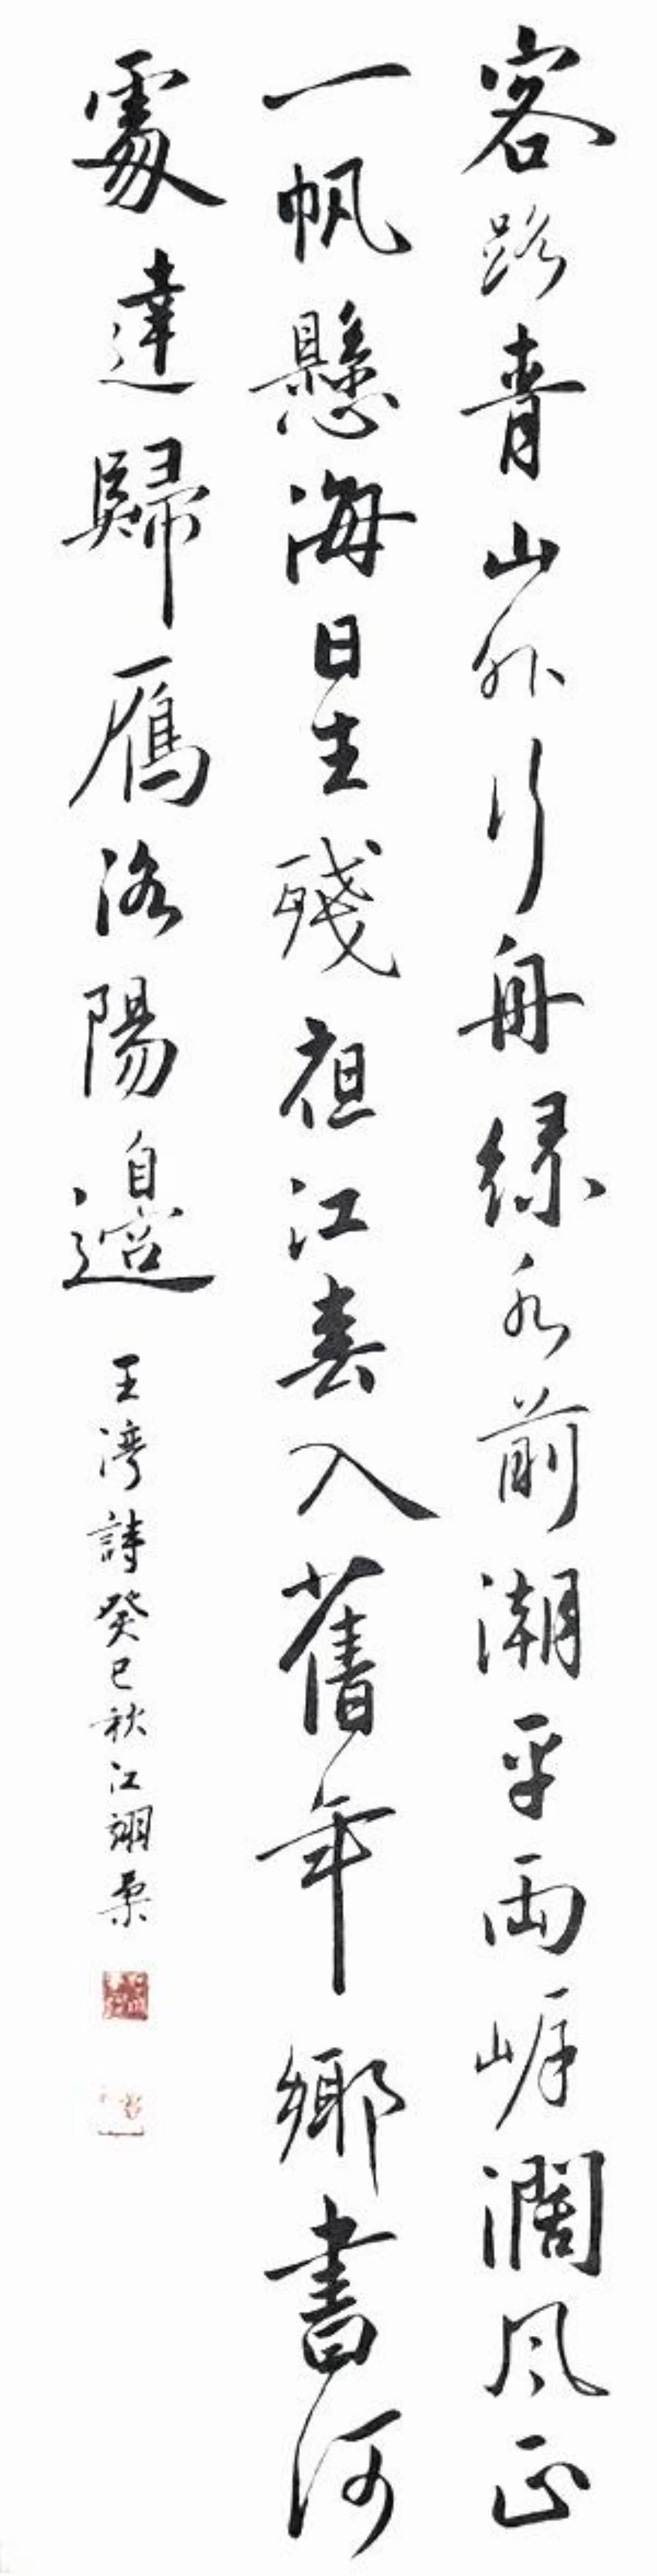 客路青山外行舟綠水前潮平兩岸闊風正
一帆懸海日生殘夜江春入舊年鄉書何
處達歸雁洛陽邊
王灣詩癸巳秋江翊